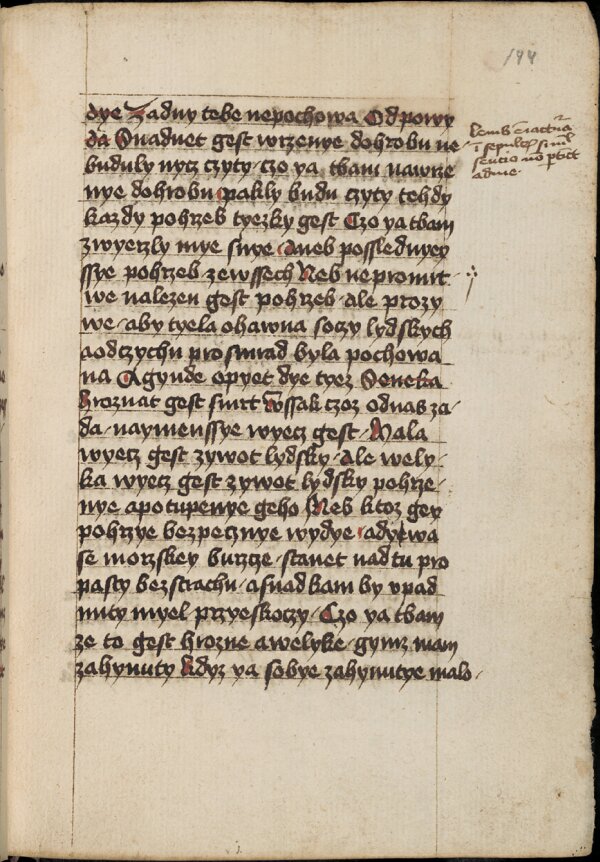 194
dye Zadny tebe nepochowa Odpowy
da Snadnet gest wrzenye dohrobu ne-
buduly nycz czyty czo ya tbam nawrze
nye dohrobu pakly budu czyty tehdy
kazdy pohrzeb tyezky gest Czo ya tbam
zwyerzly mye snye Aneb posslednyey
ssye pohrzeb zewssech Neb nepromrt
we nalezen gest pohrzeb ale prozy
we aby tyela ohawna soczy lydskych
aodczychu prosmrad byla pochowa
na Agynde opyet dye tyez Seneka
hroznat gest smrt wssak czoz odnas za
da naymenssye wyecz gest Mala
wyecz gest zywot lydsky Ale wely
ka wyecz gest zywot lydsky pohrze
nye apotupenye geho Neb ktoz gey
pohrzye bezpecznye wydye adyewa
se morzskey burzcze stanet nadtu pro
pasty bezstrachu asnad kam by vpad
nuty myel przyeskoczy Czo ya tbam
ze to gest hrozne awelyke gymz mam
zahynuty kdyz ya sobye zahynutye malo